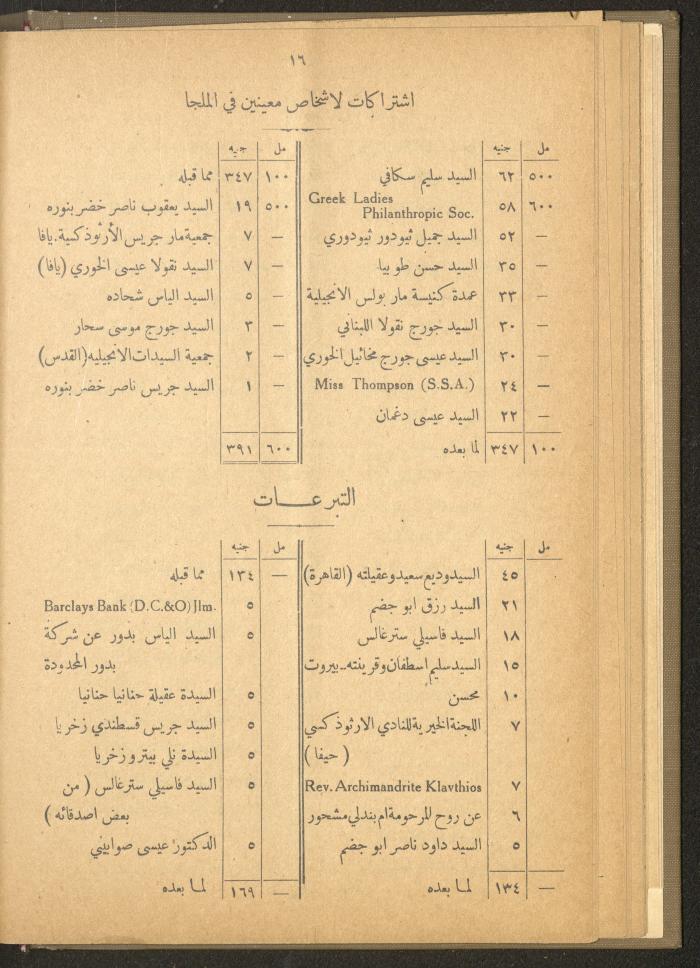 ١٦
اشتراكات لاشخاص معينين في الملجا
مل جنيه
٥٠٠ ٦٢ السيد سليم سكافي
٦٠٠ ٥٨ Greek Ladies
Philanthropic Soc.
— ٥٢ السيد جميل ثيودور ثيودوري
— ٣٥ السيد حسن طوبيا
— ٣٣ عمدة كنيسة مار بولس الانجيلية
— ٣٠ السيد جورج نقولا اللبناني
— ٣٠ السيد عيسى جورج مخائيل الخوري
— ٢٤ Miss Thompson (S.S.A.)
— ٢٢ السيد عيسى دغمان
١٠٠ ٣٤٧ لما بعده
مل جنيه
١٠٠ ٣٤٧ مما قبله
٥٠٠ ١٩ السيد يعقوب ناصر خضر بنوره
— ٧ جمعية مار جريس الأرثوذكسية. يافا
— ٧ السيد نقولا عيسى الخوري (يافا)
— ٥ السيد الياس شحاده
— ٣ السيد جورج موسى سحار
— ٢ جمعية السيدات الانجيليه (القدس)
— ١ السيد جريس ناصر خضر بنوره
٦٠٠ ٣٩١
التبرعـــات
مل جنيه
٤٥ السيد وديع سعيد وعقيلته (القاهرة)
٢١ السيد رزق ابو جضم
١٨ السيد فاسيلي سترغالس
١٥ السيد سليم اسطفان وقرينته ـ بيروت
١٠ محسن
٧ اللجنة الخيرية للنادي الارثوذكسي
( حيفا )
٧ Rev. Archimandrite Klavthios
٦ عن روح المرحومة ام بندلي مشحور
٥ السيد داود ناصر ابو جضم
— ١٣٤ لما بعده
مل جنيه
— ١٣٤ مما قبله
٥ Barclays Bank (D.C.&O) Jlm.
٥ السيد الياس بدور عن شركة
بدور المحدودة
٥ السيدة عقيلة حنانيا حنانيا
٥ السيد جريس قسطندي زخريا
٥ السيدة نلي بيترو زخريا
٥ السيد فاسيلي سترغالس ( من
بعض اصدقائه )
٥ الدكتور عيسى صوابيني
— ١٦٩ لما بعده